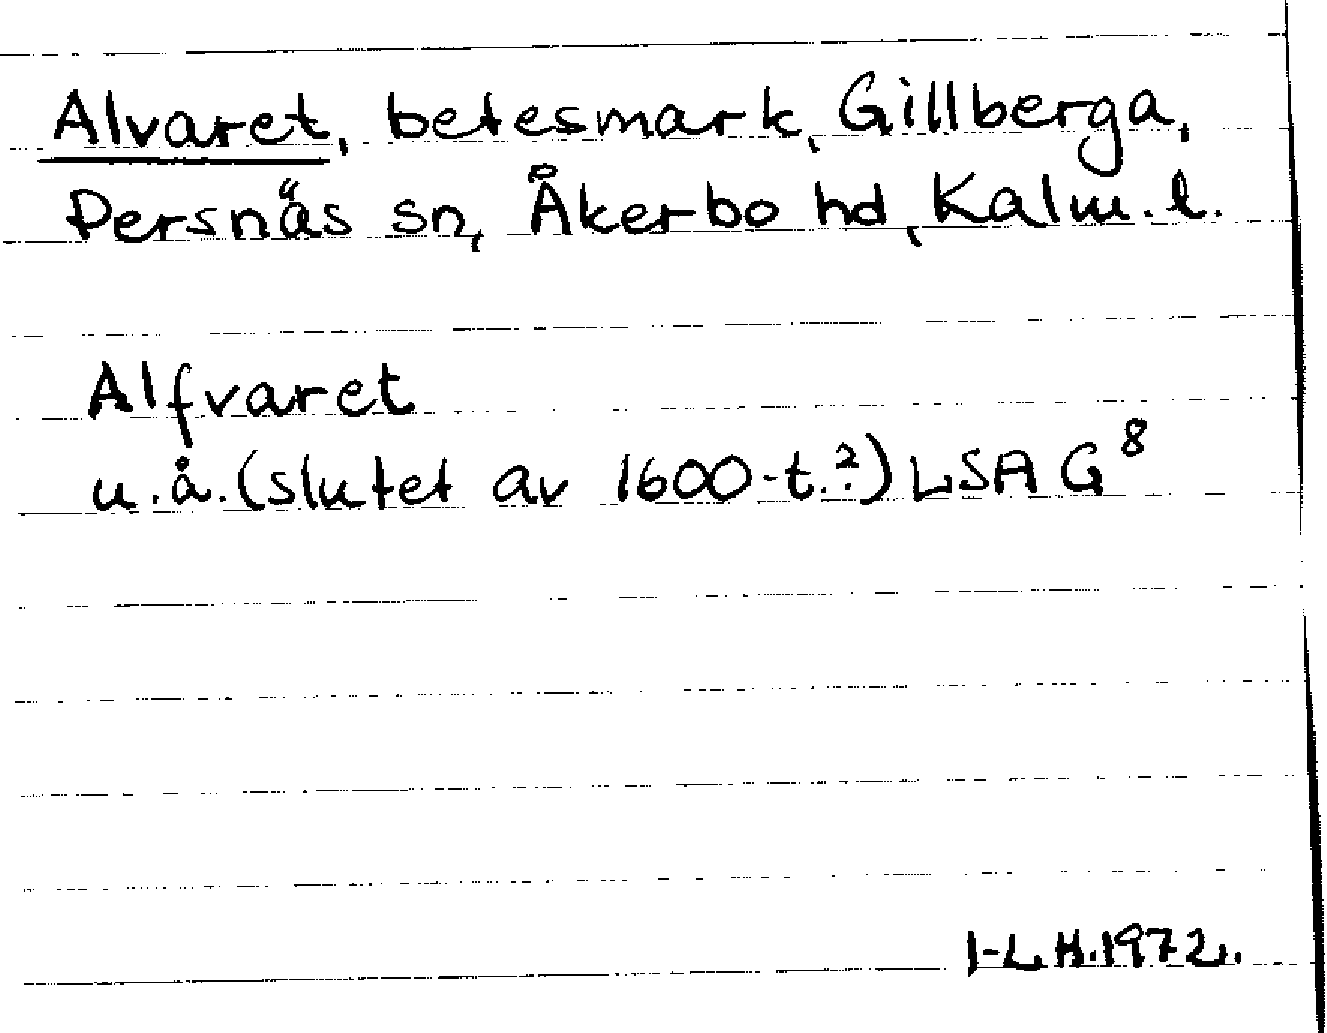 Alvaret, betesmark, Gillberga,
Persnäs sn, Åkerbo hd, Kalm. l.
Alfvaret
u.å. (slutet av 1600-t.?) LSA G⁸
I-L H. 1972.